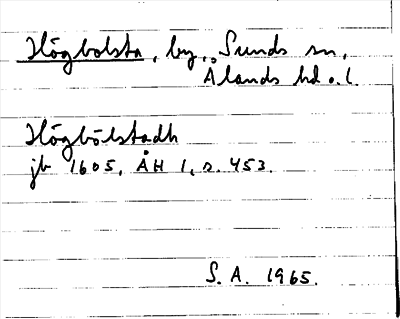 Högbolsta, by, Sunds sn,
Ålands hd o. l.
Högbölstadh
jb 1605, ÅH 1, s. 453.
S. A. 1965.